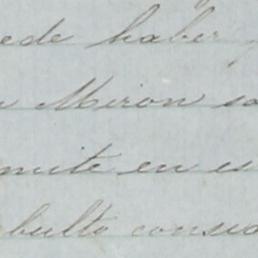 ede haber
Miron
mite en es
bulto consid